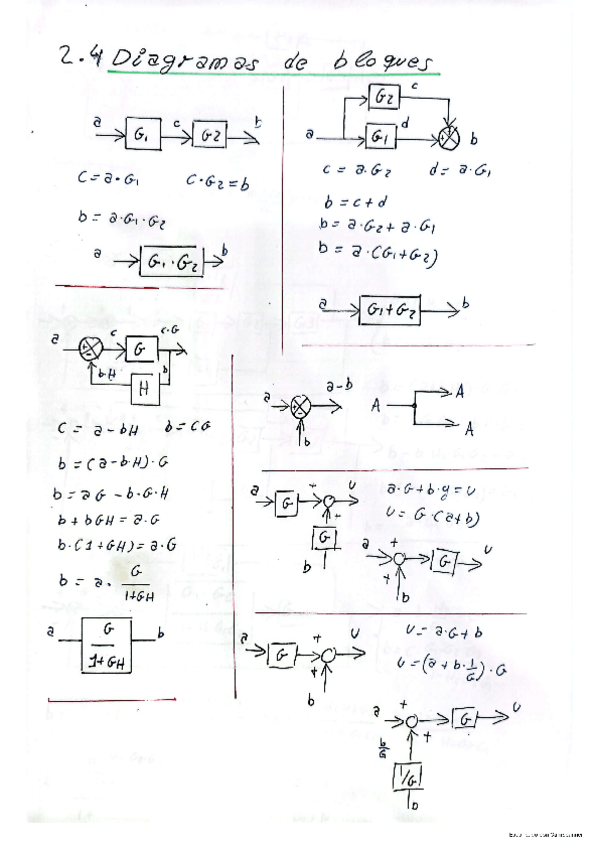 2.4 Diagramas de bloques
a G₁ c G₂ b
C = a·G₁ C·G₂ = b
b = a·G₁·G₂
a G₁·G₂ b
G₂ c
a G₁ d b
c = a·G₂ d = a·G₁
b = c + d
b = a·G₂ + a·G₁
b = a·(G₁+G₂)
a G₁+G₂ b
a + − c G c·G
b·H H b
C = a − bH b = CG
b = (a − b·H)·G
b = aG − b·G·H
b + bGH = a·G
b·(1+GH) = a·G
b = a · G/1+GH
a G/1+GH b
a + − a−b
b
A A
A
a G + U
+
G
b
a·G + b·g = U
U = G·(a+b)
a + G U
+
b
a G + U
+
b
U = a·G + b
U = (a + b·1/G)·G
a + G U
b/G +
1/G
b